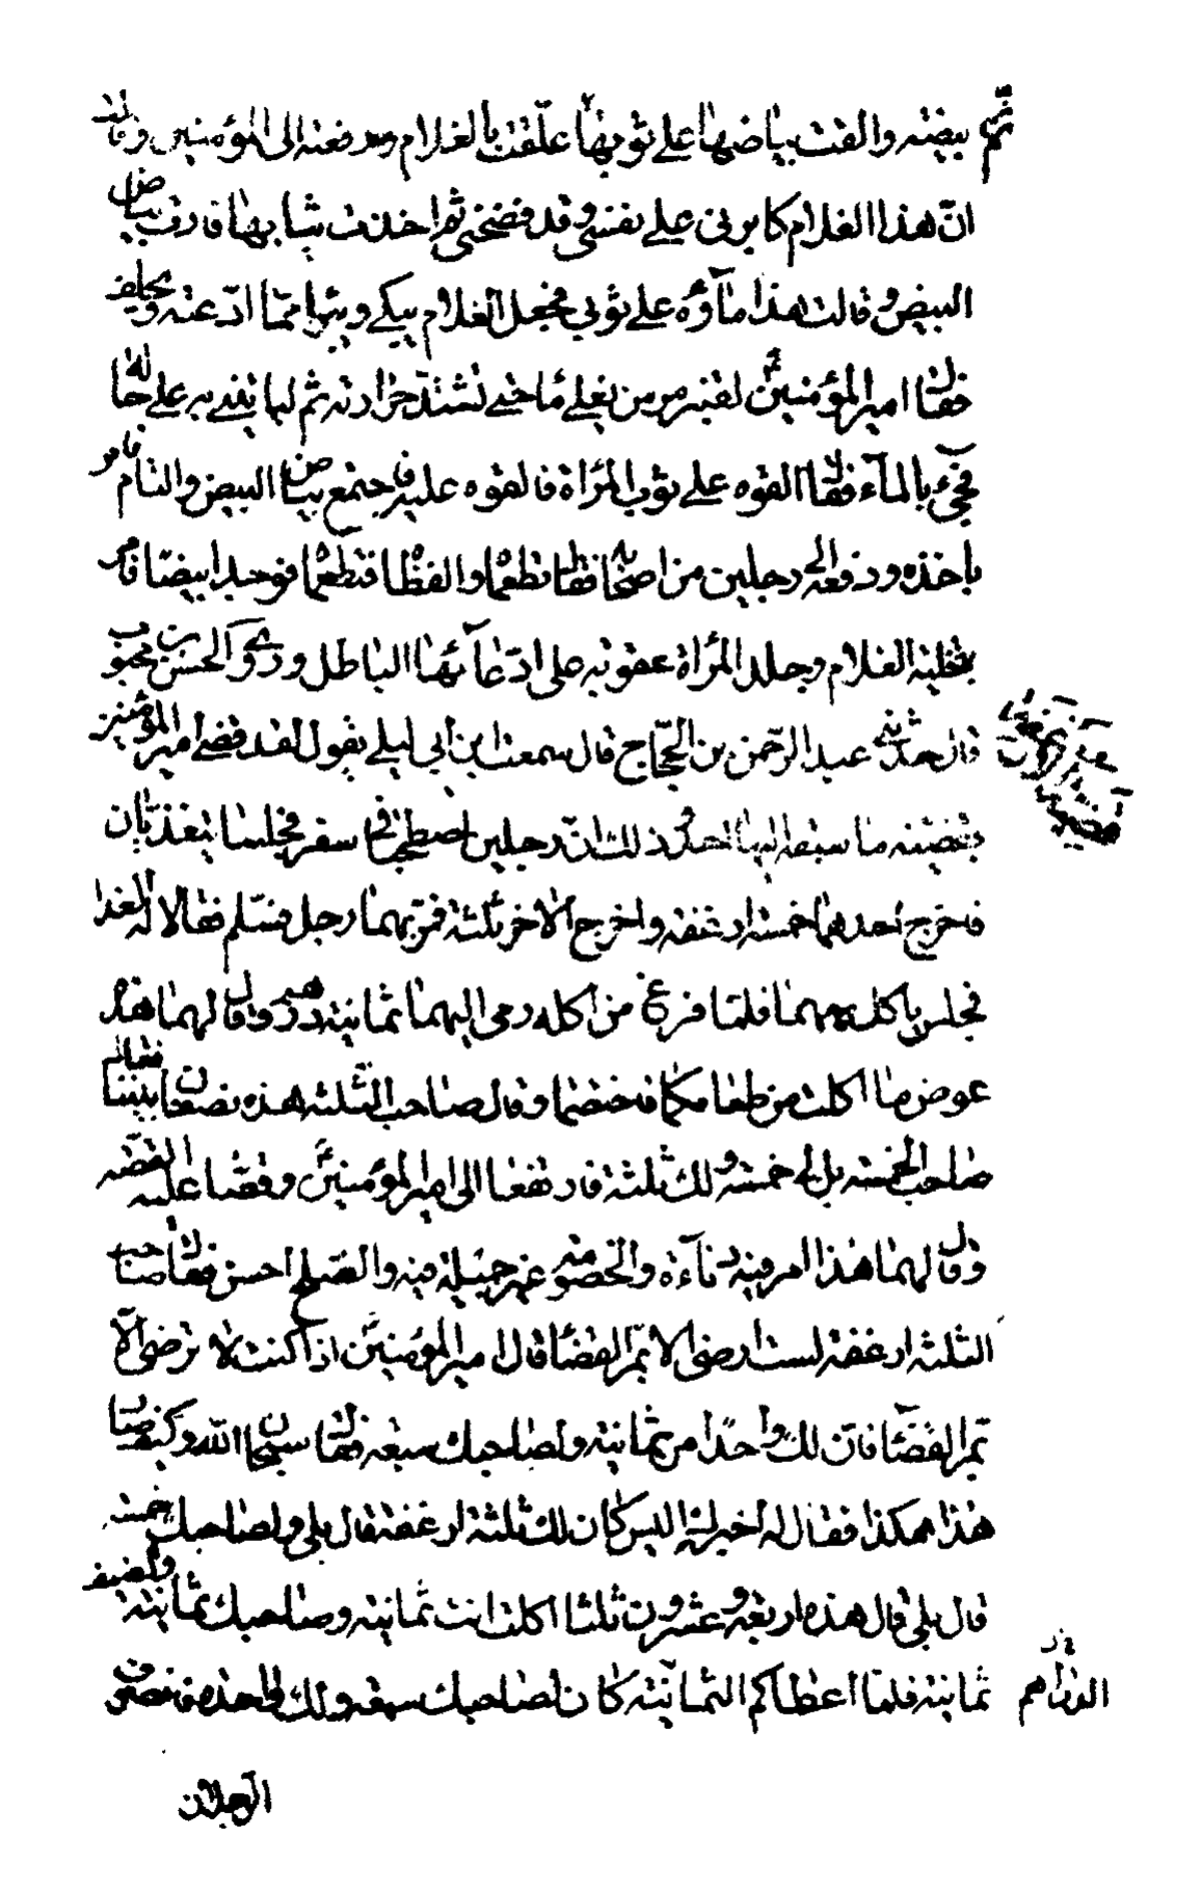 ثمّ بيضة والقت بياضها على ثوبها علّقت بالغلام ورفعته الى امير المؤمنين وقالت
انّ هذا الغلام كابرني على نفسي وقد فضحني ثم اخذت ثيابها فارت بياض
البيض وقالت هذا ماؤه على ثوبي فجعل الغلام يبكي ويبرأ ممّا ادّعته ويحلف
فقال امير المؤمنين لقنبر من يغلي ماء حتى تشتدّ حرارته ثم ليأتني به على حاله
فجيء بالماء فقال القوه على ثوب المرأة فالقوه عليه فاجتمع بياض البيض والتأم فامر
باخذه ودفعه الى رجلين من اصحابه فقال تطعماه والفظاه فتطعماه فوجداه بيضا فامر
بتخلية الغلام وجلد المرأة عقوبة على ادّعائها الباطل وروى الحسن بن محبوب
قال حدثني عبد الرحمن بن الحجّاج قال سمعت ابن أبي ليلى يقول لقد قضى امير المؤمنين
بقضية ما سبقه اليها احد وذلك انّ رجلين اصطحبا في سفر فجلسا يتغذيان
فاخرج احدهما خمسة ارغفة واخرج الاخر ثلثة فمرّ بهما رجل فسّلم فقالا له الغدا
فجلس ياكل معهما فلما فرغ من اكله رمى اليهما ثمانية دراهم وقال لهما هذه
عوض ما اكلت من طعامكما فاختصما وقال صاحب الثلثة هذه نصفان بيننا فقال
صاحب الخمسة بل لي خمسة ولك ثلثة فارتفعا الى امير المؤمنين وقصّا عليه القصّة
وقال لهما هذا امر فيه دناءة والخصومة غير جميلة فيه والصّلح احسن فقال صاحب
الثلثة ارغفة لست ارضى الا بمرّ القضاء قال امير المؤمنين اذا كنت لا ترضى الّا
بمر القضاء فانّ لك واحدا من ثمانية ولصاحبك سبعة فقال سبحان الله وكيف صار
هذا هكذا فقال له اخبرك اليس كان لك ثلثة ارغفة قال بلى ولصاحبك خمسة
قال بلى قال هذه اربعة وعشرون ثلثا اكلت انت ثمانية وصاحبك ثمانية والضيف
ثمانية فلمّا اعطاكم الثمانية كان لصاحبك سبعة ولك واحدة فانصرف
الرجلان